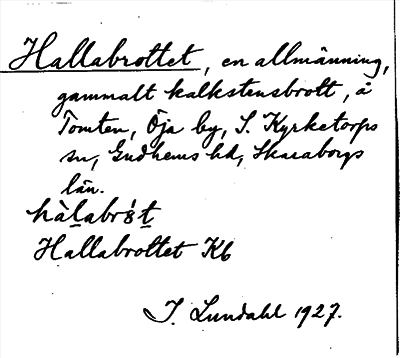 Hallabrottet, en allmänning,
gammalt kalkstensbrott, å
Tomten, Öja by, S. Kyrketorps
sn, Gudhems hd, Skaraborgs
län.
Hallabrottet Kb
I. Lundahl 1927.